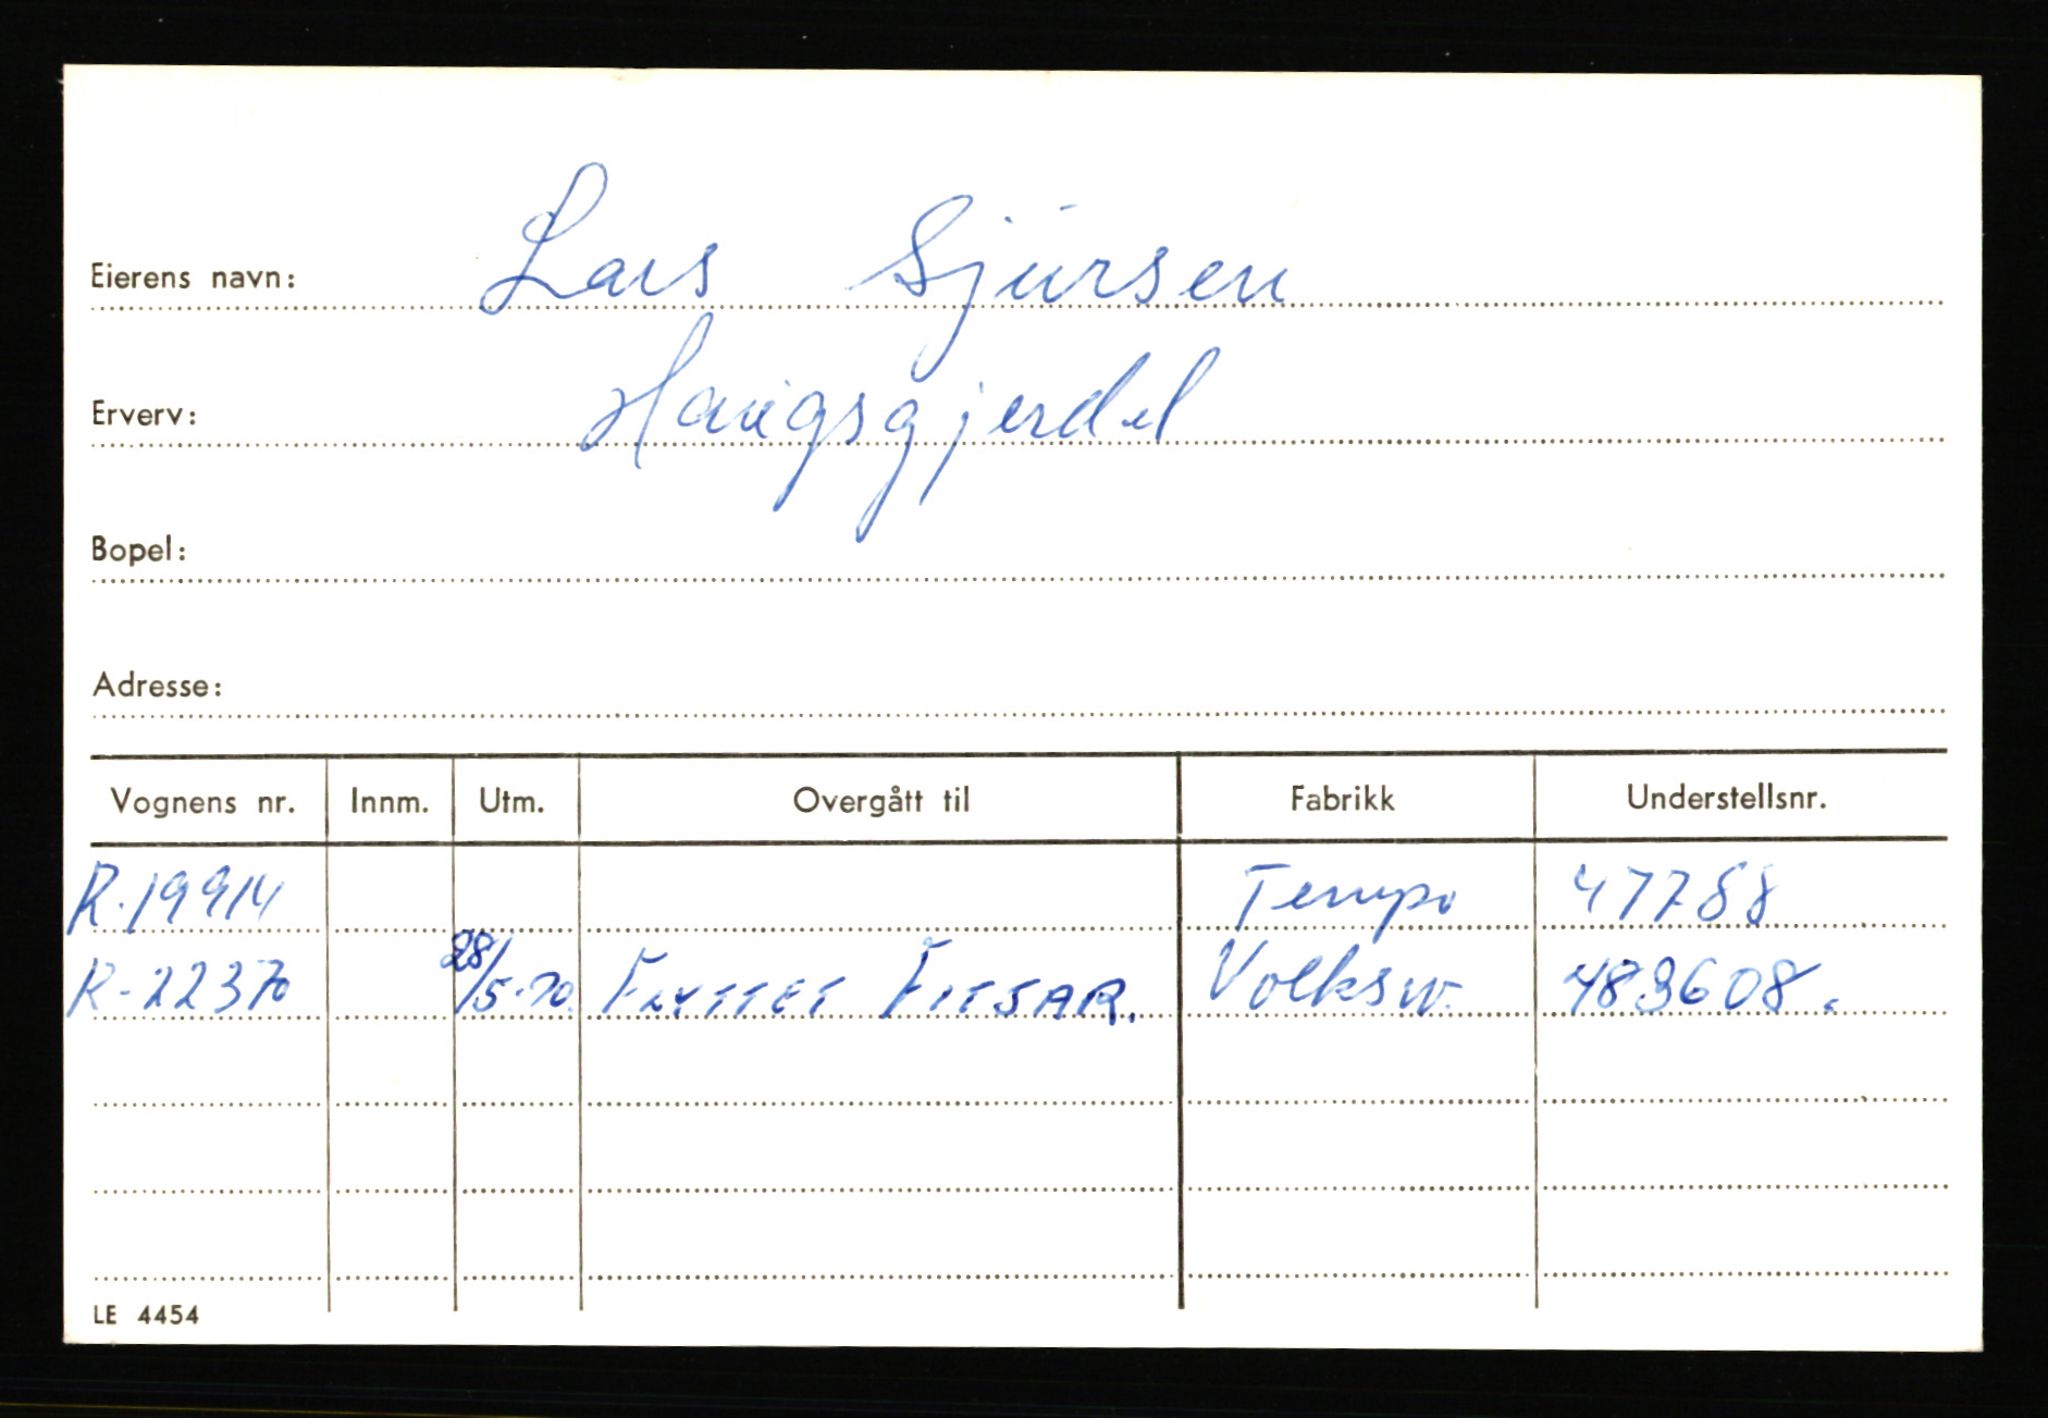 Eierens navn: Lars Sjursen
Erverv: Haugsgjerdet
Bopel:
Adresse:
Vognens nr. Innm. Utm. Overgått til Fabrikk Understellsnr.
R-19914 Tempo 47788
R-22370 28/5-70. FLYTTET FITJAR. Volksw. 483608.
LE 4454